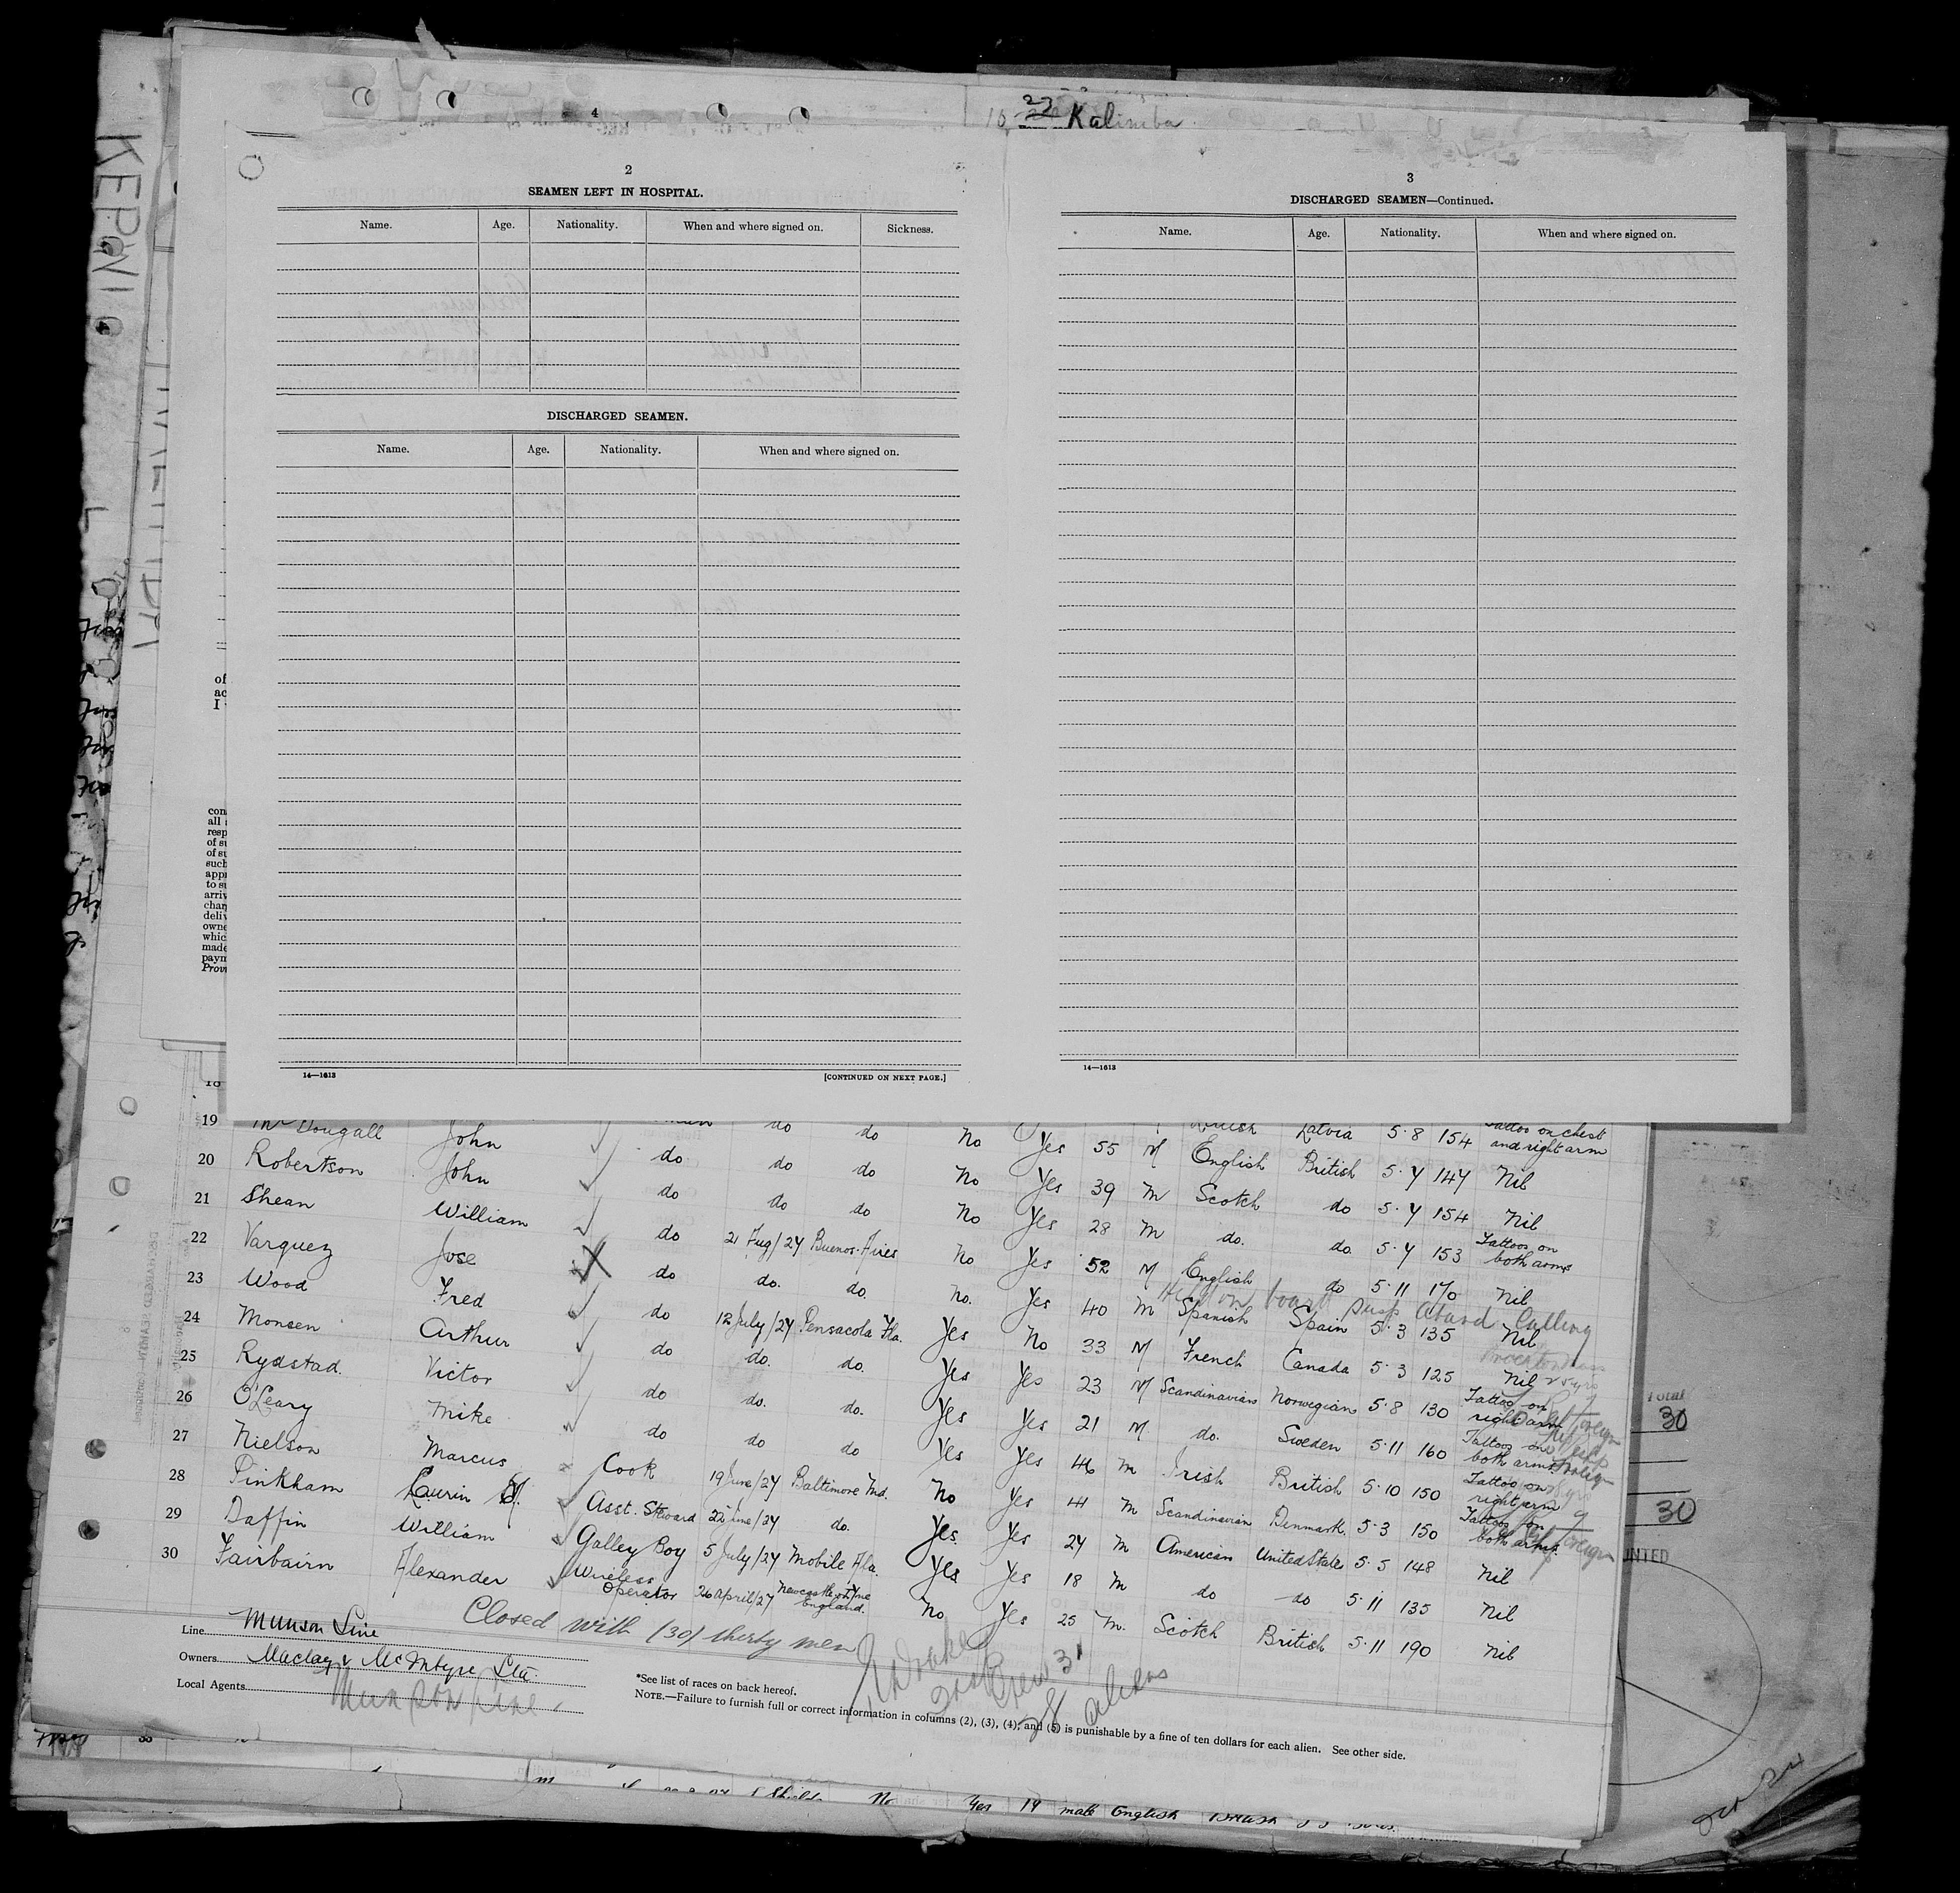 23
Kalimba
4
2
SEAMEN LEFT IN HOSPITAL.
Name. Age. Nationality. When and where signed on. Sickness.
DISCHARGED SEAMEN.
Name. Age. Nationality. When and where signed on.
14—1613 [CONTINUED ON NEXT PAGE.]
3
DISCHARGED SEAMEN—Continued.
Name. Age. Nationality. When and where signed on.
14—1613
of
ac
I
con
all
resp
of su
of su
such
app
to su
arriv
char
deliv
owne
whic
made
paym
Provi
Latvia 5·8 154 Tattoo on chest and right arm
18 do do No Yes 55 M English British 5·7 147 Nil
19 McDougall John do do do No Yes 39 M Scotch do 5·7 154 Nil
20 Robertson John do do do No Yes 28 M do. do 5·7 153 Tattoos on both arms
21 Shean William do 21 Aug/24 Buenos Aires No Yes 52 M English do 5·11 170 Nil
Held on board
22 Varquez Jose do do. do. No. Yes 40 M Spanish Spain 5·3 135 Nil
23 Wood Fred do 12 July/24 Pensacola Fla. Yes No 33 M French Canada 5·3 125 Nil
24 Monsen Arthur do do. do. Yes Yes 23 M Scandinavian Norwegian 5·8 130 Tattoo on right arm
25 Rydstad. Victor do do. do. Yes Yes 21 M do. Sweden 5·11 160 Tattoo on both arms
26 O'Leary Mike do do do Yes Yes 46 M Irish British 5·10 150 Tattoo on right arm
27 Nielson Marcus Cook 19 June/24 Baltimore Md. No Yes 41 M Scandinavian Denmark. 5·3 150 Tattoos on both arms.
28 Pinkham Laurin Asst. Steward 22 June/24 do. Yes Yes 24 M American United State 5·5 148 Nil
29 Daffin William Galley Boy 5 July/24 Mobile Ala. Yes Yes 18 M do do 5·11 135 Nil
30 Fairbairn Alexander Wireless Operator 26 April/24 Newcastle on Tyne England. No Yes 25 M. Scotch British 5·11 190 Nil
Closed with (30) thirty men
Crew 31
28 aliens
Line Munson Line
Owners Maclay & McIntyre Ltd.
Local Agents Munson Line
*See list of races on back hereof.
NOTE.—Failure to furnish full or correct information in columns (2), (3), (4), and (5) is punishable by a fine of ten dollars for each alien. See other side.
Total
30
30
No Yes 19 male English British